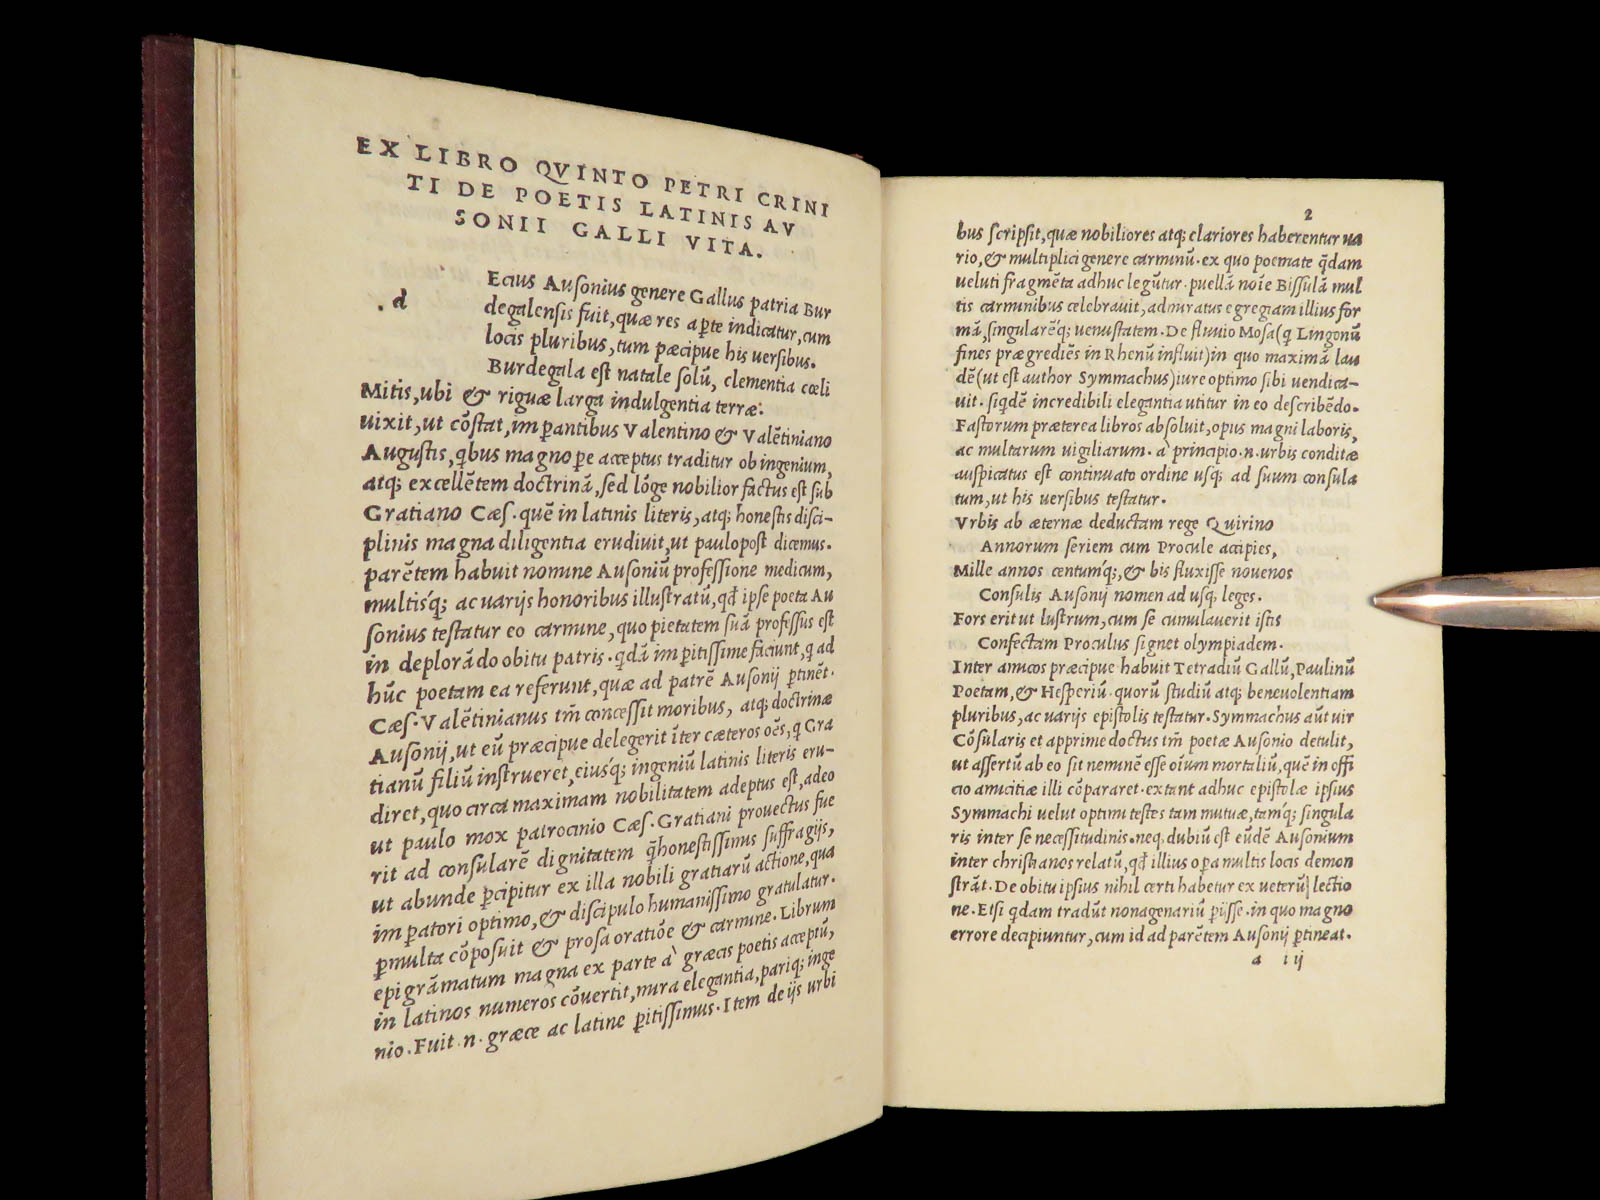 EX LIBRO QVINTO PETRI CRINI
TI DE POETIS LATINIS AV
SONII GALLI VITA.
. d
Ecius Ausonius genere Gallus patria Bur
degalensis fuit, quæ res aꝑte indicatur, cum
locis pluribus, tum pæcipue his uersibus.
Burdegala est natale solū, clementia cœli
Mitis, ubi & riguæ larga indulgentia terræ.
uixit, ut cōstat, imꝑantibus Valentino & Valētiniano
Augustis, q̇bus magnoꝑe acceptus traditur ob ingenium,
atq; excellētem doctrinā, sed lōge nobilior factus est sub
Gratiano Cæs. quē in latinis literis, atq; honestis disci-
plinis magna diligentia erudiuit, ut paulopost dicemus.
parētem habuit nomine Ausoniū professione medicum,
multisq́; ac uarijs honoribus illustratū, qđ ipse poeta Au
sonius testatur eo carmine, quo pietatem suā professus est
in deplorādo obitu patris. q̇dā imꝑitissime faciunt, q̇ ad
hūc poetam ea referunt, quæ ad patrē Ausonij ꝑtinēt.
Cæs. Valētinianus tm̄ concessit moribus, atq; doctrinæ
Ausonij, ut eū præcipue delegerit īter cæteros oēs, q̇ Gra
tianū filiū instrueret, eiusq́; ingeniū latinis literis eru-
diret, quo circa maximam nobilitatem adeptus est, adeo
ut paulo mox patrocinio Cæs. Gratiani prouectus fue
rit ad consularē dignitatem q̄honestissimus suffragijs,
ut abunde ꝑcipitur ex illa nobili gratiarū actione, qua
imꝑatori optimo, & discipulo humanissimo gratulatur.
ꝑmulta cōposuit & prosa oratiōe & carmine. Librum
epigrāmatum magna ex parte à græcis poetis acceptū,
in latinos numeros cōuertit, mira elegantia, pariq; inge
nio. Fuit .n. græce ac latine ꝑitissimus. Item de ijs urbi
2
bus scripsit, quæ nobiliores atq; clariores haberentur ua
rio, & multiplici genere carminū. ex quo poemate q̄dam
ueluti fragmēta adhuc legūtur. puellā noīe Bissulā mul
tis carminibus celebrauit, admiratus egregiam illius for
mā, singularēq; uenustatem. De fluuio Mosa (q̇ Lingonū
fines prægrediēs in Rhenū influit) in quo maximā lau
dē (ut est author Symmachus) iure optimo sibi uendica-
uit. siqdē incredibili elegantia utitur in eo describēdo.
Fastorum præterea libros absoluit, opus magni laboris,
ac multarum uigiliarum. à principio .n. urbis conditæ
auspicatus est continuato ordine usq; ad suum consula
tum, ut his uersibus testatur.
Vrbis ab æternæ deductam rege Quirino
Annorum seriem cum Procule accipies,
Mille annos centumq́;, & bis fluxisse nouenos
Consulis Ausonij nomen ad usq; leges.
Fors erit ut lustrum, cum se cumulauerit istis
Confectam Proculus signet olympiadem.
Inter amicos præcipue habuit Tetradiū Gallū, Paulinū
Poetam, & Hesperiū. quorū studiū atq; beneuolentiam
pluribus, ac uarijs epistolis testatur. Symmachus aūt uir
Cōsularis et apprime doctus tm̄ poetæ Ausonio detulit,
ut assertū ab eo sit neminē esse oīum mortaliū, quē in offi
cio amicitiæ illi cōpararet. extant adhuc epistolæ ipsius
Symmachi uelut optimi testes tam mutuæ, tamq́; singula
ris inter se necessitudinis. neq. dubiū est eūdē Ausonium
inter christianos relatū, qđ illius oꝑa multis locis demon
strāt. De obitu ipsius nihil certi habetur ex ueterū lectio
ne. Etsi q̇dam tradūt nonagenariū ꝑijsse. in quo magno
errore decipiuntur, cum id ad parētem Ausonij ꝑtineat.
a iij